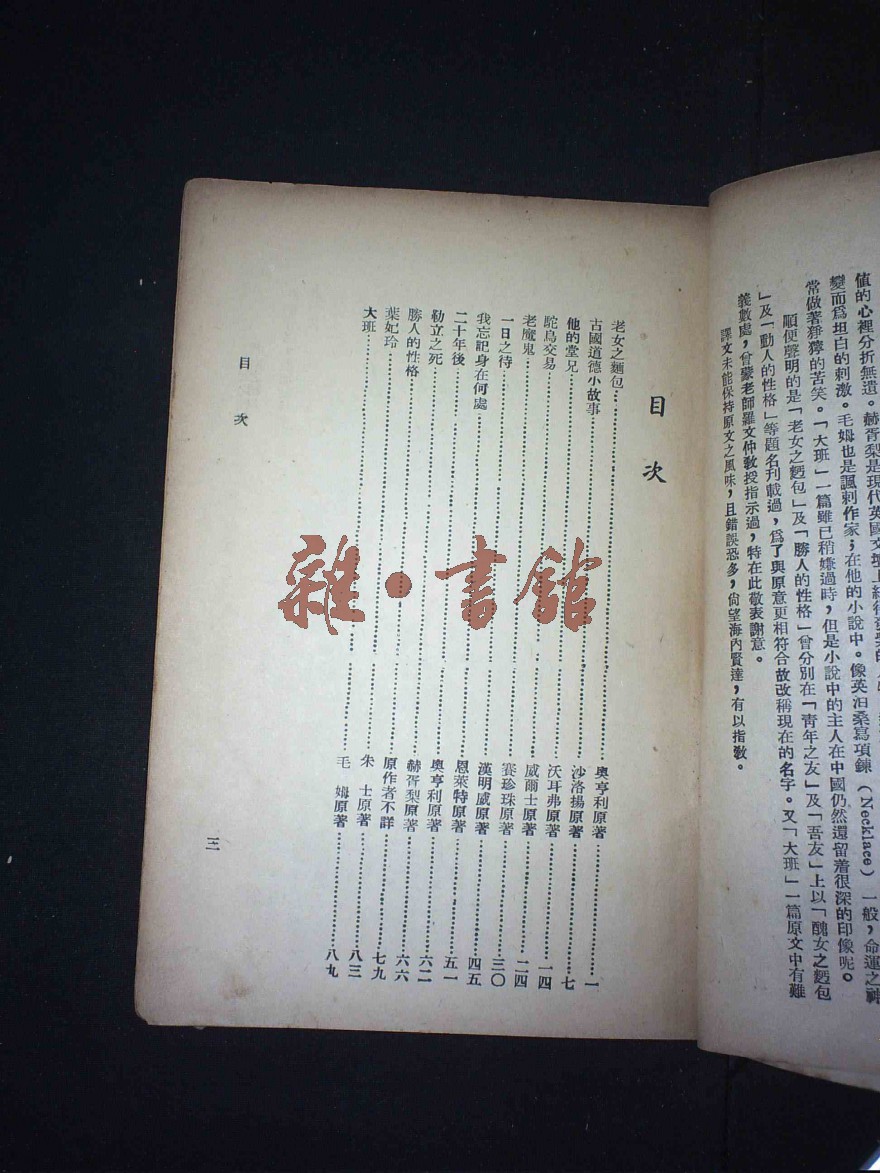 值的心裡分折無遺。赫胥梨是現代英國文壇上
變而爲坦白的刺激。毛姆也是諷剌作家；在他的小說中。像英泊桑寫項鍊（Necklace）一般，命運之神
常做著猙獰的苦笑。「大班」一篇雖已稍嫌過時，但是小說中的主人在中國仍然還留着很深的印像呢。
順便聲明的是「老女之麵包」及「勝人的性格」曾分別在「青年之友」及「吾友」上以「醜女之麵包
」及「動人的性格」等題名刊載過，爲了與原意更相符合故改稱現在的名字。又「大班」一篇原文中有難
義數處，曾蒙老師羅文仲敎授指示過，特在此敬表謝意。
譯文未能保持原文之風味，且錯誤恐多，尙望海內賢達，有以指敎。
目次
老女之麵包……奧亨利原著……一
古國道德小故事……沙洛揚原著……七
他的堂兄……沃耳弗原著……一四
鴕鳥交易……威爾士原著……二四
老魔鬼……賽珍珠原著……三〇
一日之待……漢明威原著……四五
我忘記身在何處……恩萊特原著……五一
二十年後……奧亨利原著……六二
勒立之死……赫胥梨原著……六六
勝人的性格……原作者不詳……七九
葉妃玲……朱士原著……八三
大班……毛姆原著……八九
目次
三
雜·書館